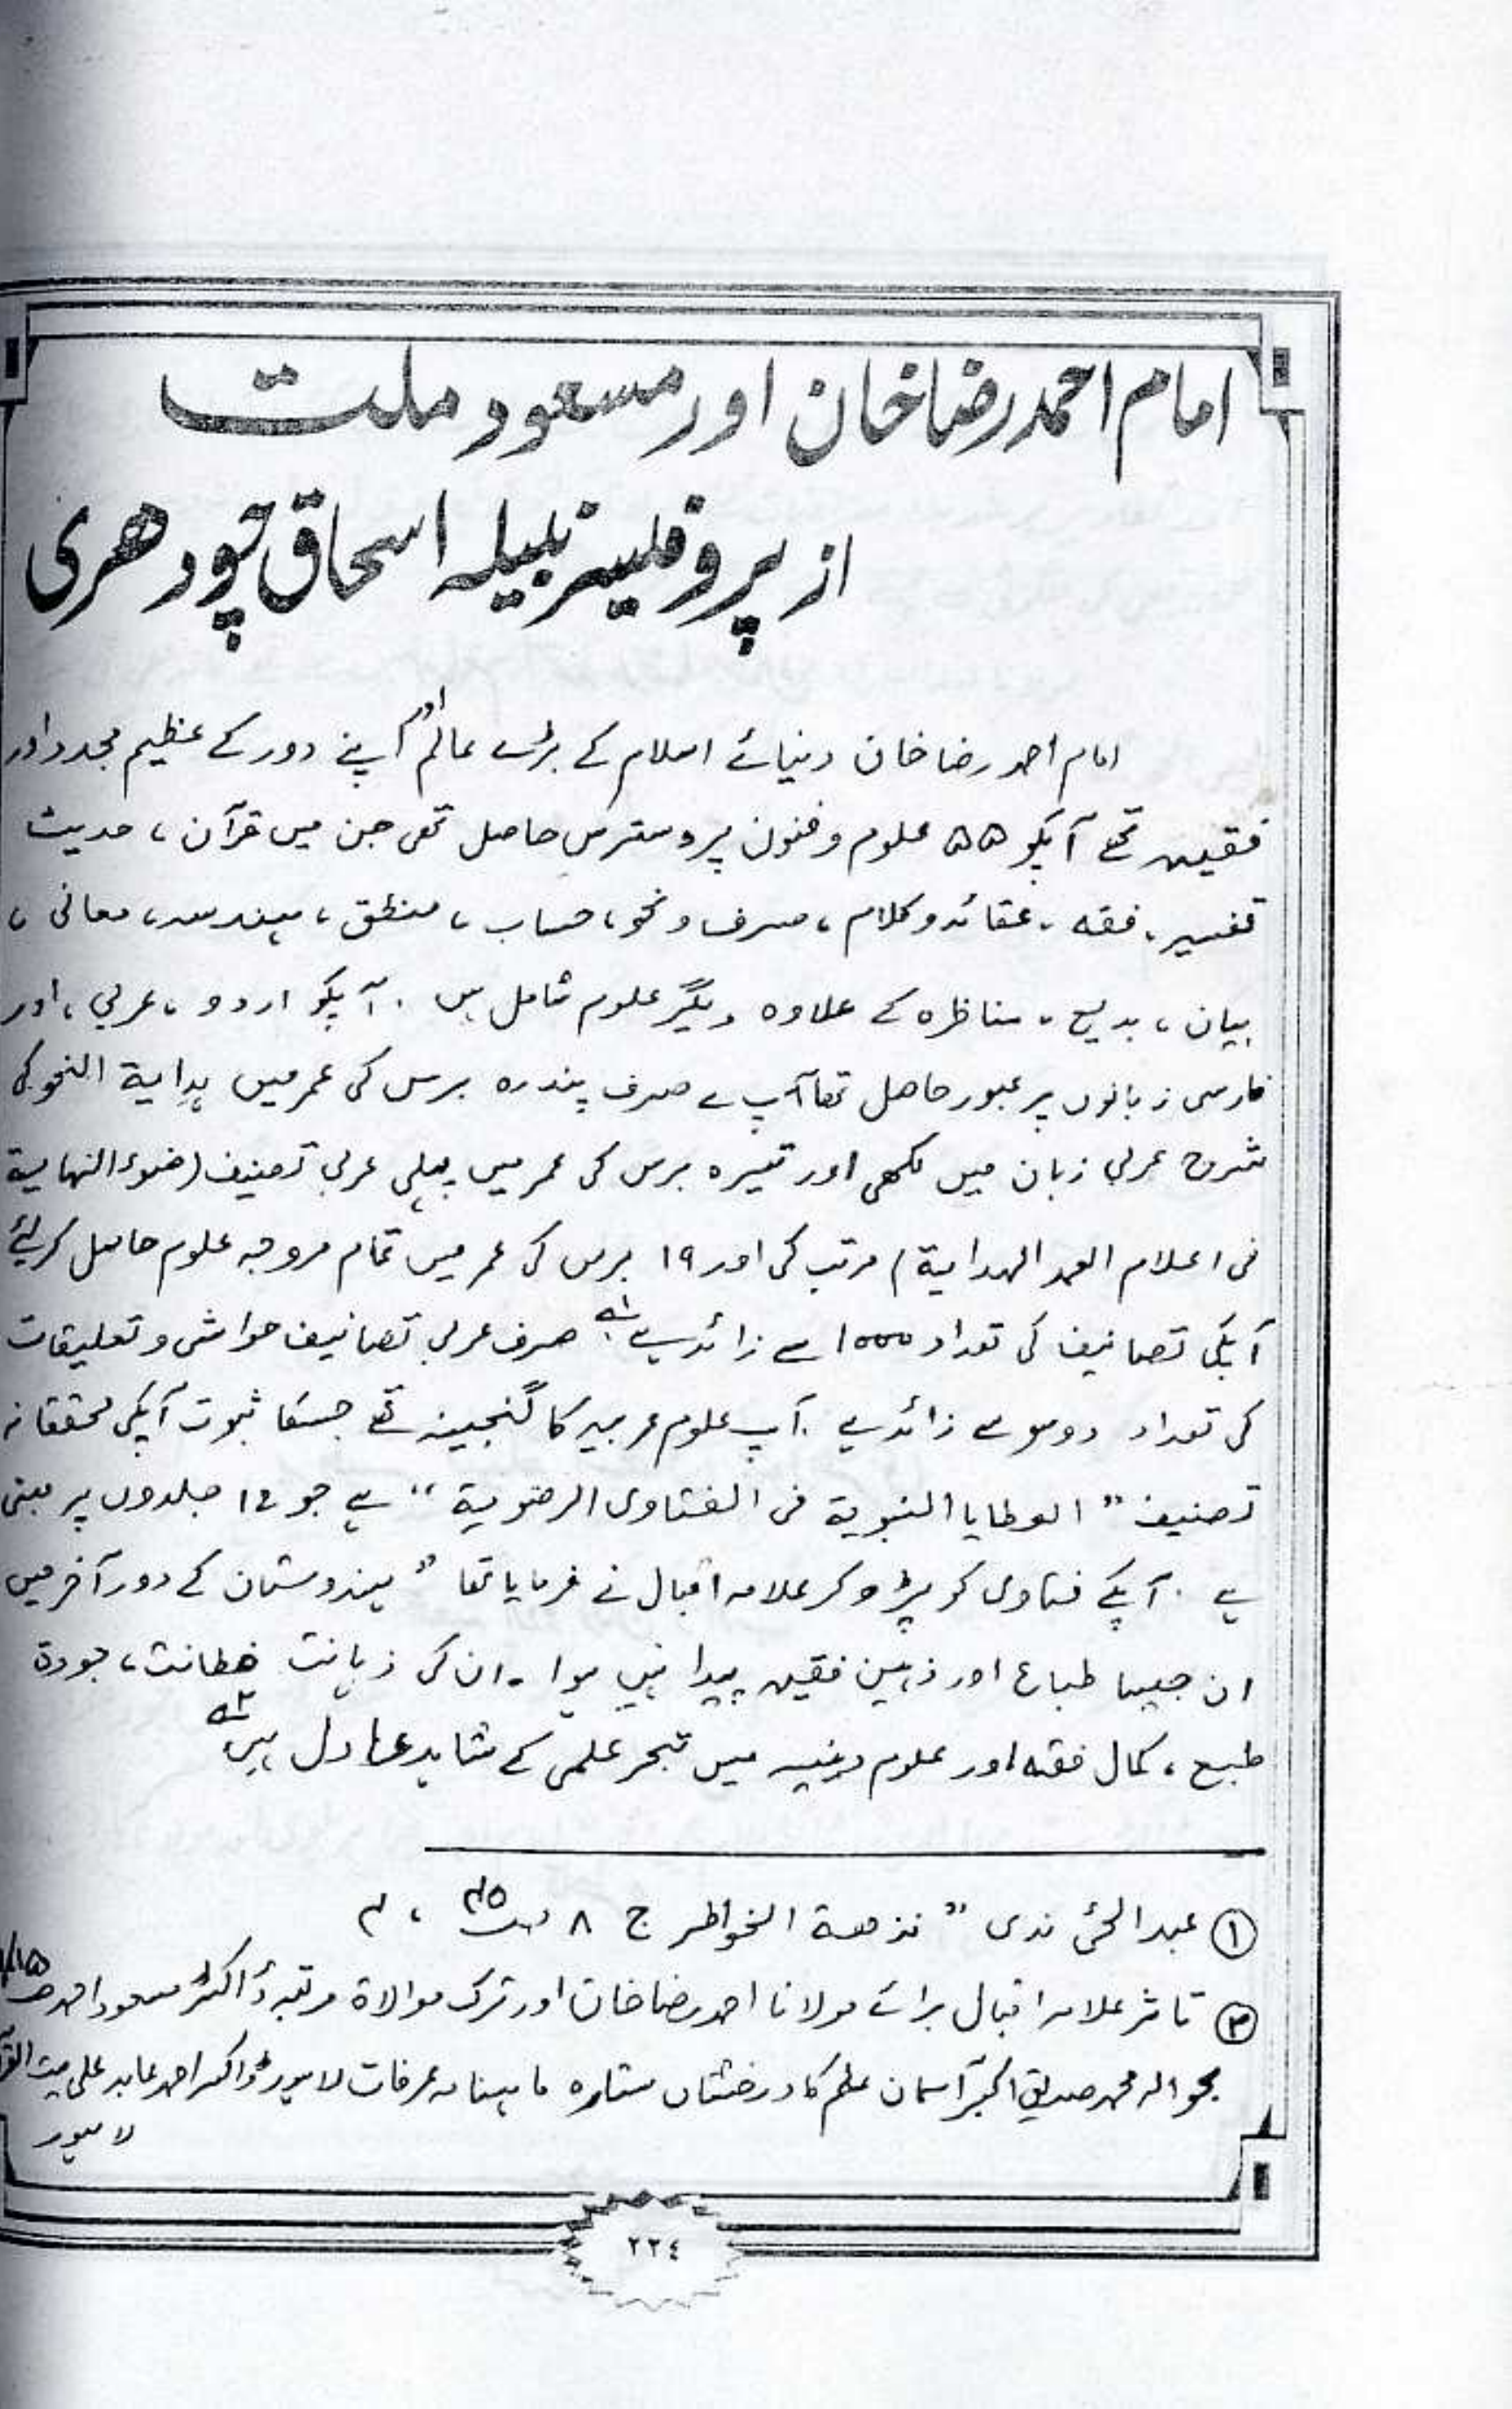 امام احمد رضا خان اور مسعود ملت
از پروفیسر نبیلہ اسحاق چودھری
امام احمد رضا خان دنیائے اسلام کے بڑے عالم اور اپنے دور کے عظیم مجدد اور
فقیہہ تھے آپکو ۵۵ علوم و فنون پر دسترس حاصل تھی جن میں قرآن ، حدیث
تفسیر ، فقہ ، عقائد و کلام ، صرف و نحو ، حساب ، منطق ، ہندسہ ، معانی ،
بیان ، بدیع ، مناظرہ کے علاوہ دیگر علوم شامل ہیں . آپکو اردو ، عربی ، اور
فارسی زبانوں پر عبور حاصل تھا آپ نے صرف پندرہ برس کی عمر میں ہدایة النحو کی
شروح عربی زبان میں لکھی اور تیرہ برس کی عمر میں پہلی عربی تصنیف (ضوء النہایة
فی اعلام الحمد الہدایة) مرتب کی اور ۱۹ برس کی عمر میں تمام مروجہ علوم حاصل کر لئے
آپکی تصانیف کی تعداد ۱۰۰۰ سے زائد ہے ۱؎ صرف عربی تصانیف حواشی و تعلیقات
کی تعداد دو سو سے زائد ہے . آپ علوم عربیہ کا گنجینہ تھے جسکا ثبوت آپکی محققانہ
تصنیف " العطایا النبویة فی الفتاوی الرضویة " ہے جو ۱۲ جلدوں پر مبنی
ہے . آپکے فتاوی کو پڑھ کر علامہ اقبال نے فرمایا تھا " ہندوستان کے دور آخر میں
ان جیسا طباع اور ذہین فقیہہ پیدا نہیں ہوا ۔ ان کی ذہانت فطانت ، جودة
طبع ، کمال فقہ اور علوم دینیہ میں تبحر علمی کے شاہد عادل ہیں ۲؎
① عبد الحئ ندوی " نزھة الخواطر ج ۸
② تاثر علامہ اقبال برائے مولانا احمد رضا خان اور ترک موالاة مرتبہ ڈاکٹر مسعود احمد
بحوالہ محمد صدیق اکبر آسمان علم کا درخشاں ستارہ ماہنامہ عرفات لاہور ڈاکٹر احمد عابد علی بیت القرآن
لاہور
٢٢٤